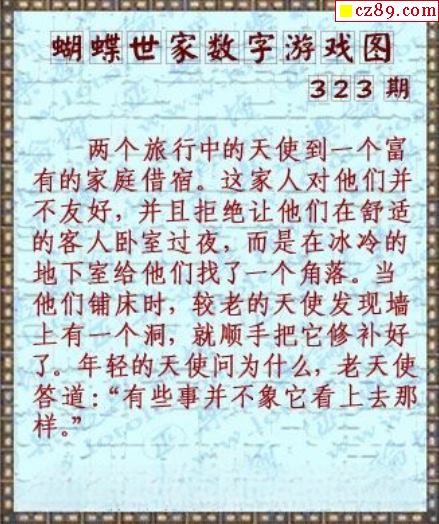 cz89.com
蝴蝶世家数字游戏图
323期
两个旅行中的天使到一个富
有的家庭借宿。这家人对他们并
不友好，并且拒绝让他们在舒适
的客人卧室过夜，而是在冰冷的
地下室给他们找了一个角落。当
他们铺床时，较老的天使发现墙
上有一个洞，就顺手把它修补好
了。年轻的天使问为什么，老天使
答道：“有些事并不象它看上去那
样。”